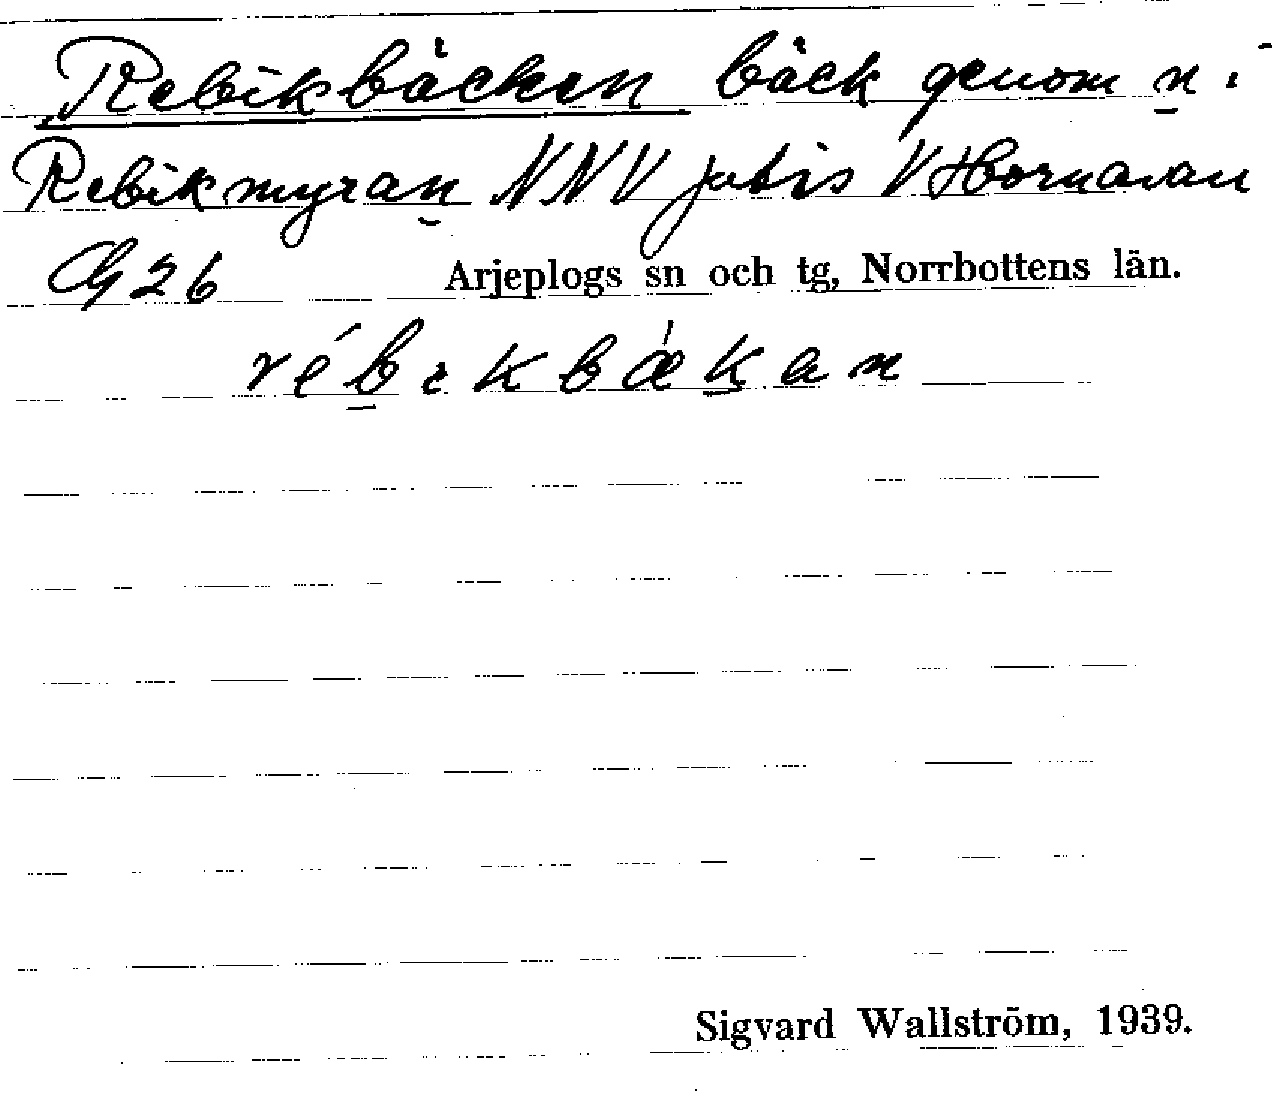 Rebikbäcken bäck genom n i
Rebikmyran NNV Jutis V Hornavan
G 26 Arjeplogs sn och tg, Norrbottens län.
rébɩkbǽkan
Sigvard Wallström, 1939.